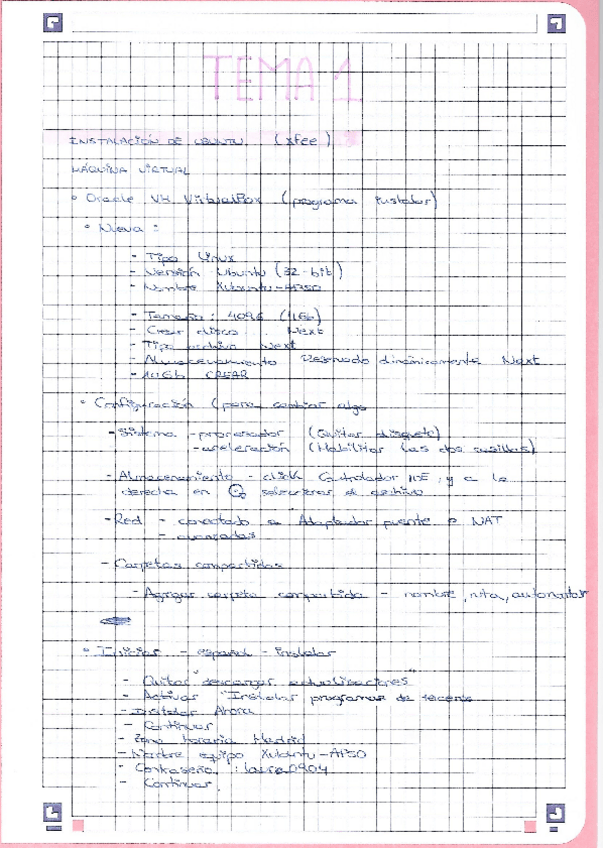 TEMA 1
INSTALACIÓN DE UBUNTU (xfce)
MÁQUINA VIRTUAL
Oracle VM VirtualBox (programa instalar)
Nueva :
- Tipo Linux
- Versión Ubuntu (32-bit)
- Nombre Xubuntu-A150
- Tamaño : 4096 (4Gb)
- Crear disco. Next
- Tipo archivo Next
- Almacenamiento Reservado dinámicamente Next
- 10Gb CREAR
Configuración (para cambiar algo
- Sistema - procesador (Quitar disquete)
- aceleración (Habilitar las dos casillas)
- Almacenamiento - click Controlador IDE, y a la
derecha en seleccionas el archivo
- Red - conectado a Adaptador puente o NAT
- avanzadas
- Carpetas compartidas
- Agregar carpeta compartida - nombre, ruta, automontar
Iniciar - español - instalar
- Quitar "descargar actualizaciones"
- Activar "Instalar programas de
- Instalar Ahora
- Continuar
- Zona horaria Madrid
- Nombre equipo Xubuntu-A150
- Contraseña : laura0904
- Continuar.